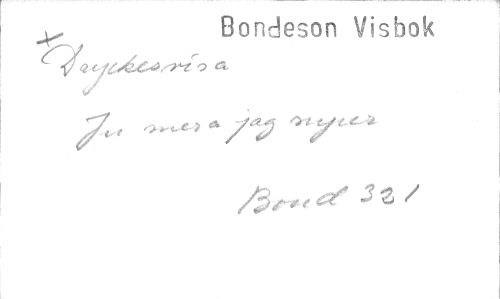 Bondeson Visbok
x
Dryckesvisa
Ju mera jag njuter
Bond 321